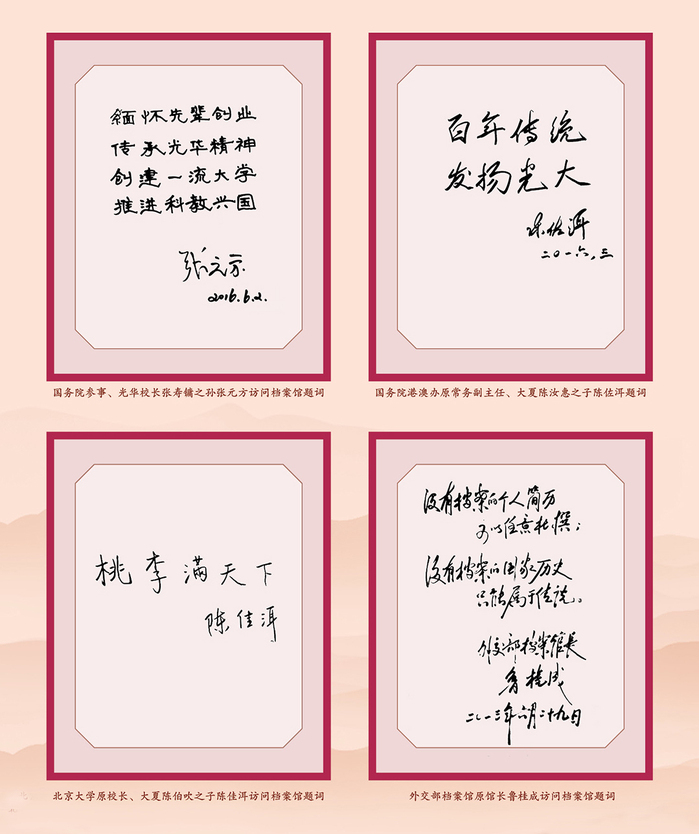 缅怀先辈创业
传承光华精神
创建一流大学
推进科教兴国
张元方
2016.6.2.
国务院参事、光华校长张寿镛之孙张元方访问档案馆题词
百年传统
发扬光大
陈佐洱
二〇一六.三
国务院港澳办原常务副主任、大夏陈汝惠之子陈佐洱题词
桃李满天下
陈佳洱
北京大学原校长、大夏陈伯吹之子陈佳洱访问档案馆题词
没有档案的个人简历
可以任意杜撰；
没有档案的国家历史
只能属于传说。
外交部档案馆长
鲁桂成
二〇一三年六月二十九日
外交部档案馆原馆长鲁桂成访问档案馆题词